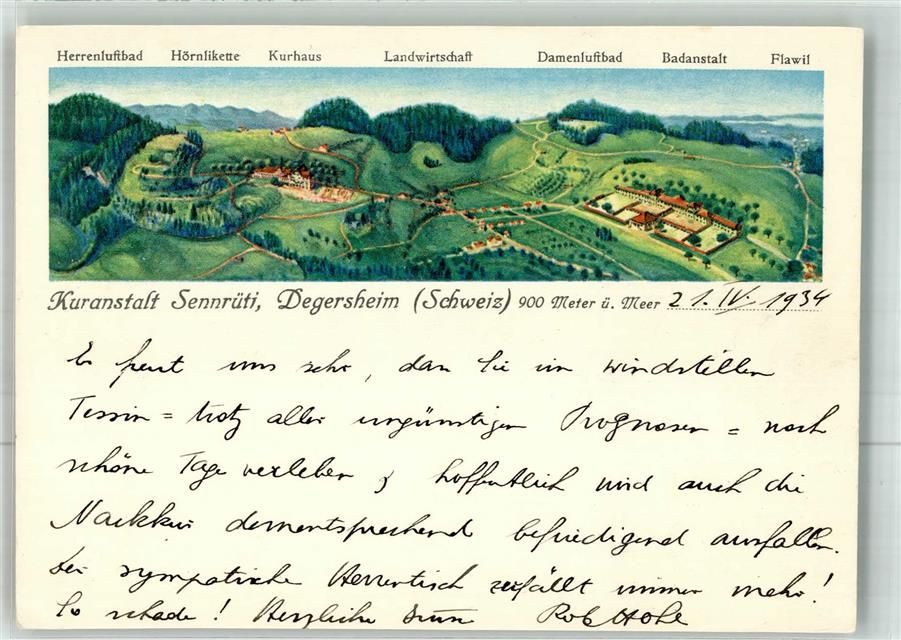 Herrenluftbad Hörnlikette Kurhaus Landwirtschaft Damenluftbad Badanstalt Flawil
Kuranstalt Sennrüti, Degersheim (Schweiz) 900 Meter ü. Meer 21. IV. 1934
Es freut uns sehr, dass Sie im windstillen
Tessin = trotz aller ungünstigen Prognosen = noch
schöne Tage verleben & hoffentlich wird auch die
Nachkur dementsprechend befriedigend ausfallen.
Der sympatische Herrentisch zerfällt immer mehr!
So schade! Herzliche Rob